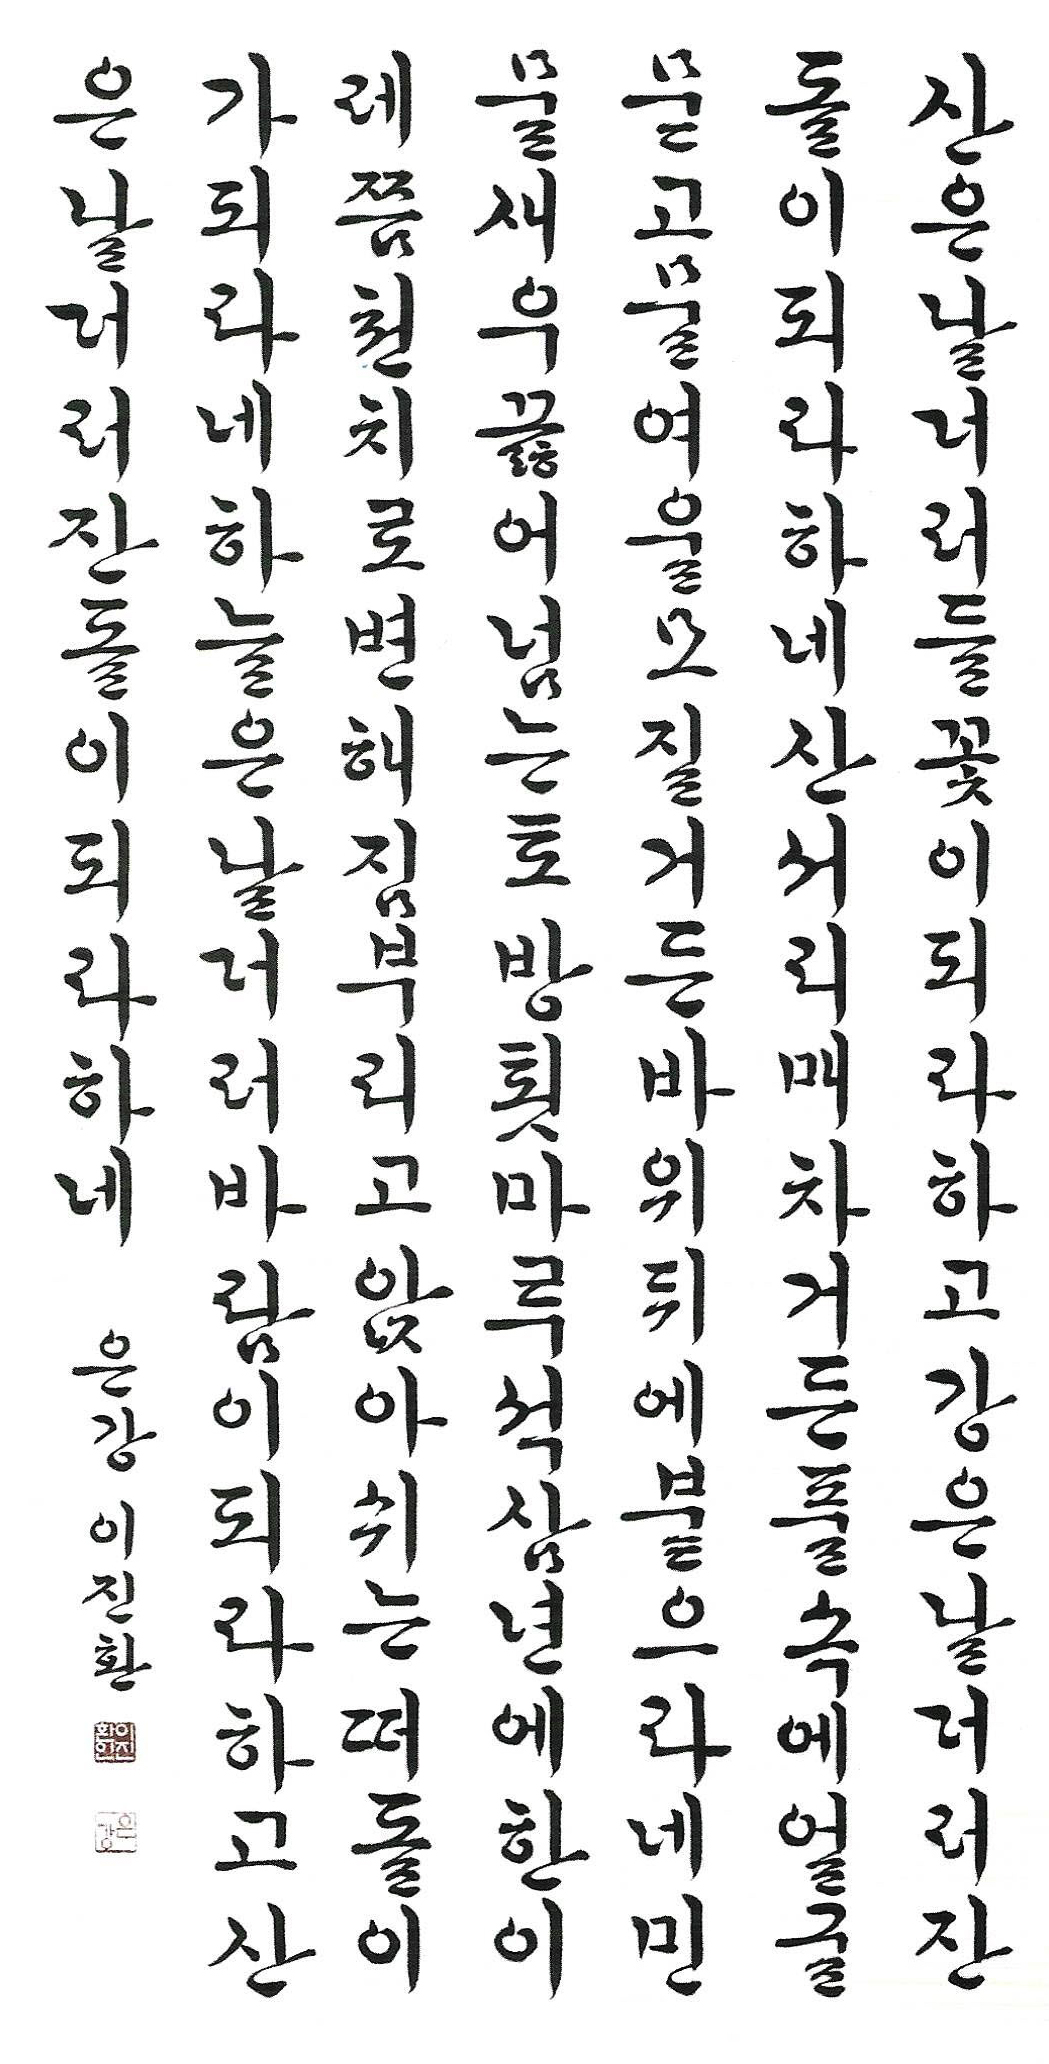 산은날더러들꽃이되라하고강은날더러잔
돌이되라하네산서리매차거든풀속에얼굴
묻고물여울모질거든바위뒤에붙으라네민
물새우끓어넘는토방툇마루석삼년에한이
레쯤천치로변해짐부리고앉아쉬는떠돌이
가되라네하늘은날더러바람이되라하고산
은날더러잔돌이되라하네 은강 이진환
이진환인
은강